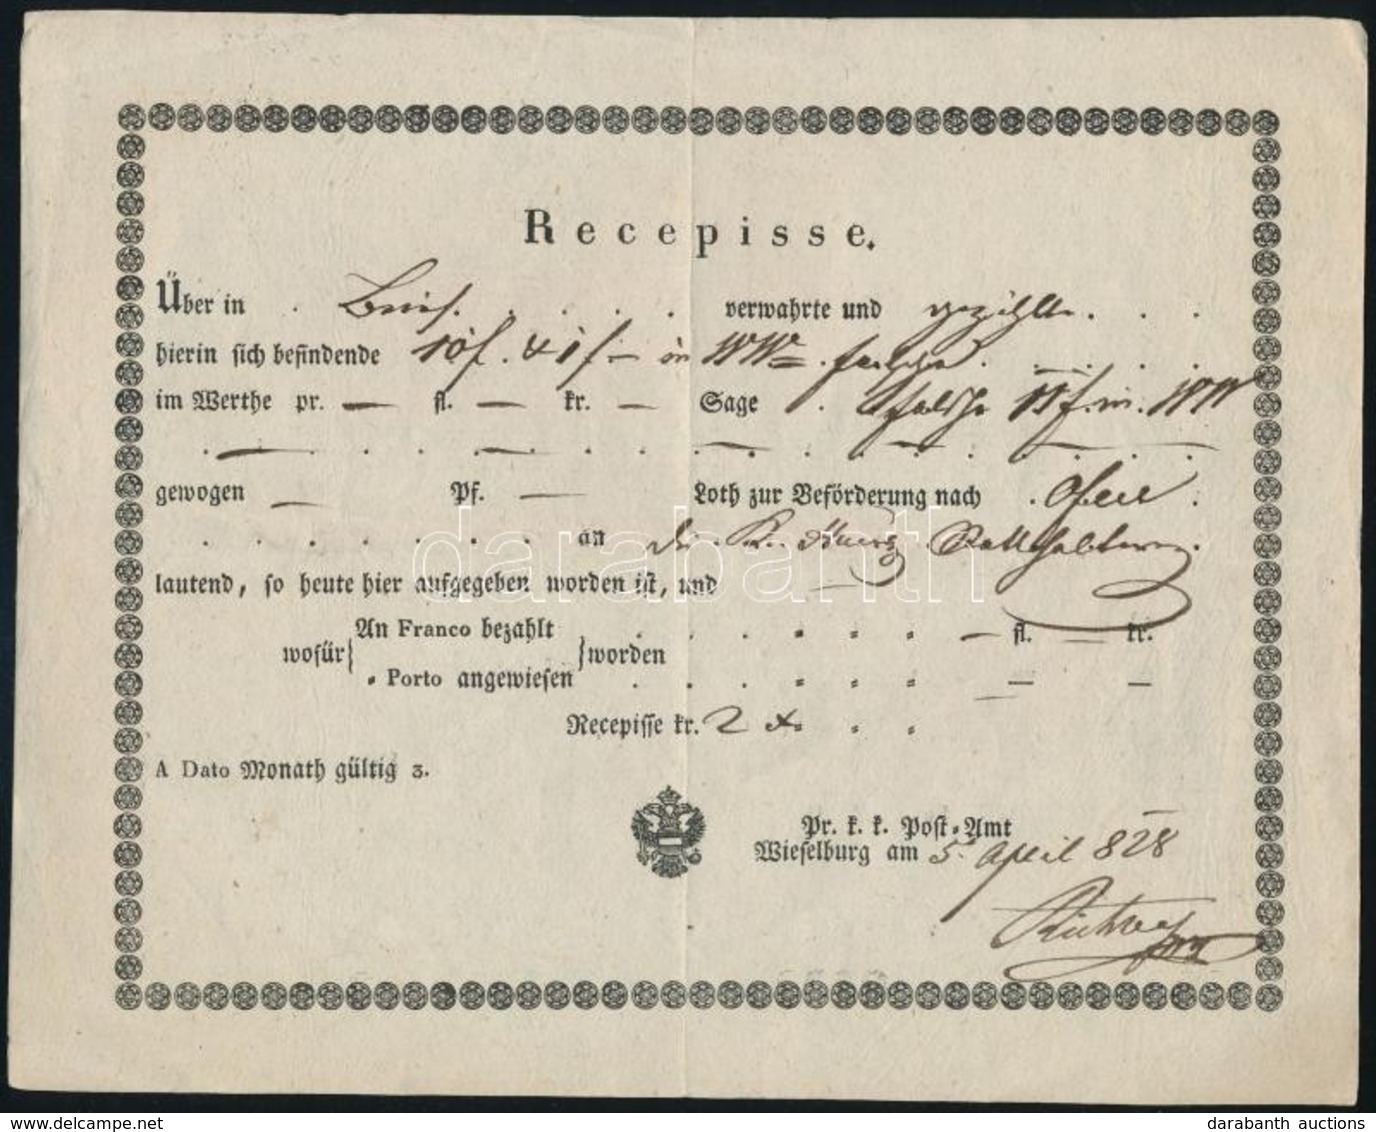 Recepisse.
Über in Brief. verwahrte und gezählte
hierin sich befindende 10 f. & 1 f in WW falsche
im Werthe pr. — fl. — kr. — Sage falsche 11 f. in. WW
gewogen — Pf. — Loth zur Beförderung nach Ofen
an die K.
lautend, so heute hier aufgegeben worden ist, und
An Franco bezahlt — fl. — kr.
wofür worden
„ Porto angewiesen — —
Recepisse kr. 2 x
A Dato Monath gültig 3.
Pr. k. k. Post-Amt
Wieselburg am 5. April 828
darabanth
darabanth auctions